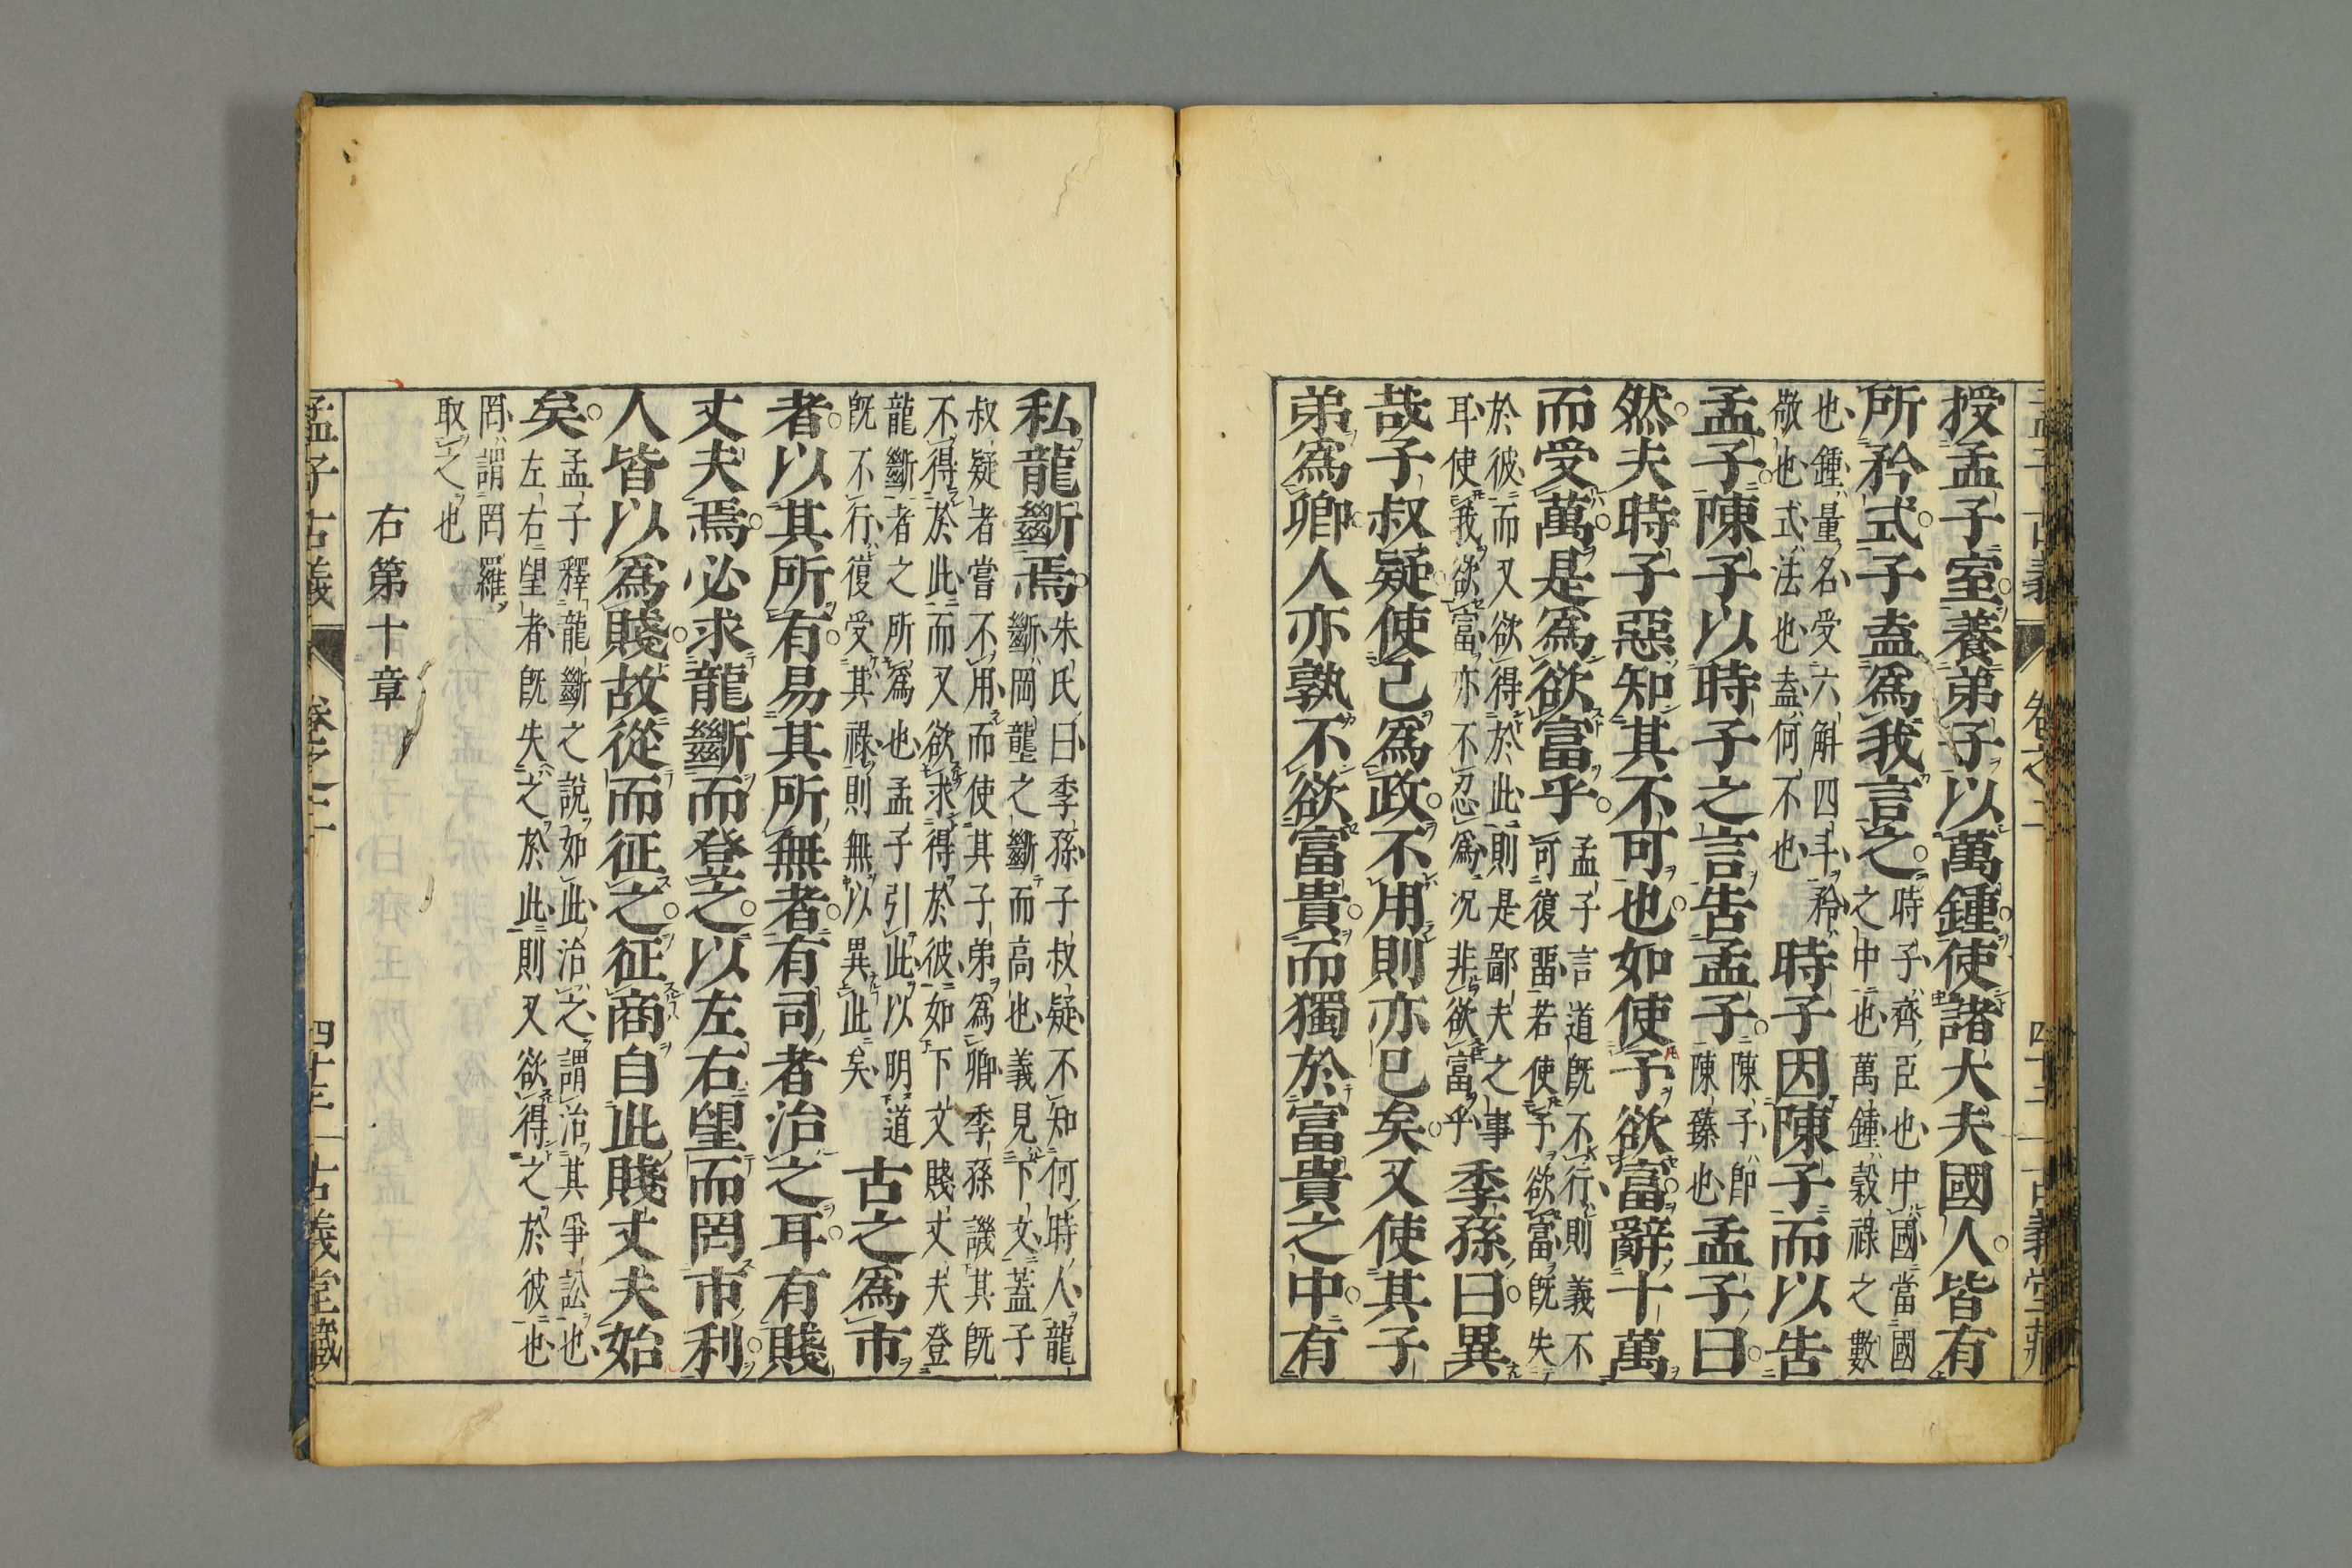 授孟子室養弟子以萬鍾使諸大夫國人皆有
所矜式子盍爲我言之時子齊臣也中國當國
之中也萬鍾穀祿之數
也鍾量名受六斛四斗矜
敬也式法也盍何不也時子因陳子而以告
孟子陳子以時子之言告孟子陳子卽
陳臻也孟子曰
然夫時子惡知其不可也如使予欲富辭十萬
而受萬是爲欲富乎孟子言道旣不行則義不
可復畱若使予欲富旣失
於彼而又欲得於此則是鄙夫之事
耳使我欲富亦不忍爲况非欲富乎季孫曰異
哉子叔疑使己爲政不用則亦已矣又使其子
弟爲卿人亦孰不欲富貴而獨於富貴之中有
私龍斷焉朱氏曰季孫子叔疑不知何時人龍
斷岡壟之斷而高也義見下文蓋子
叔疑者嘗不用而使其子弟爲卿季孫譏其旣
不得於此而又欲求得於彼如下文賤丈夫登
龍斷者之所爲也孟子引此以明道
旣不行復受其祿則無以異此矣古之爲市
者以其所有易其所無者有司者治之耳有賤
丈夫焉必求龍斷而登之以左右望而罔市利
人皆以爲賤故從而征之征商自此賤丈夫始
矣孟子釋龍斷之說如此治之謂治其爭訟也
左右望者旣失之於此則又欲得之於彼也
罔謂罔羅
取之也
右第十章
孟子古義
卷之二
四十三
古義堂藏